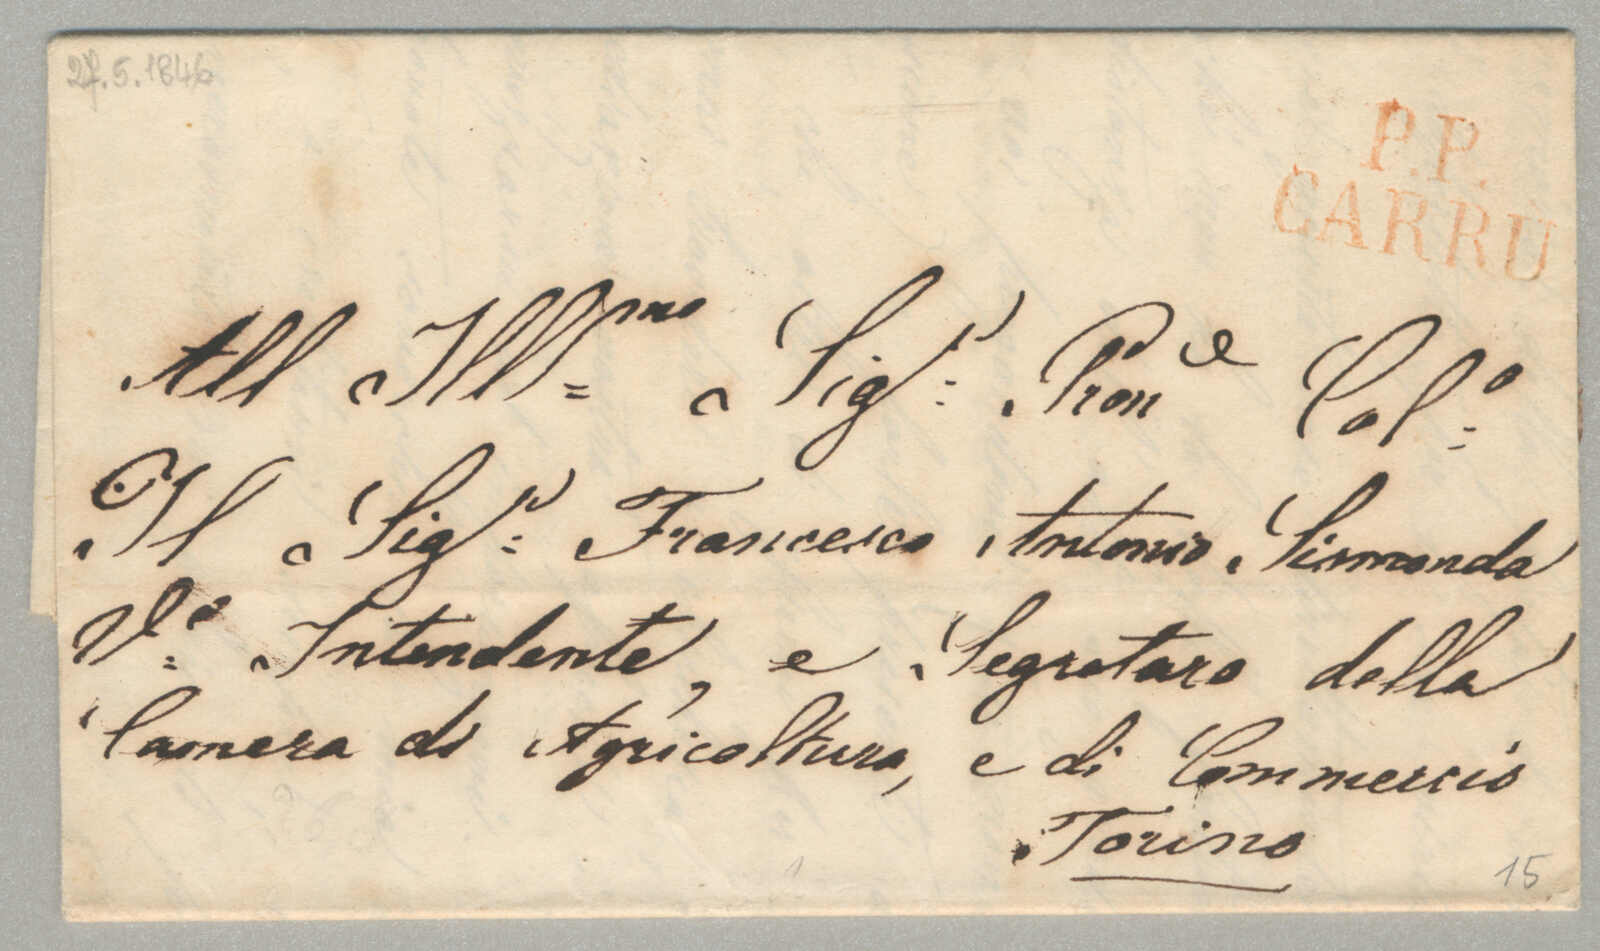 27.5.1846
P.P.
CARRU
All Ill.mo Sig.r Pron.e Col.o
Il Sig.r Francesco Antonio Sismonda
V.o Intendente, e Segretaro della
Camera di Agricoltura, e di Commercio
Torino
15